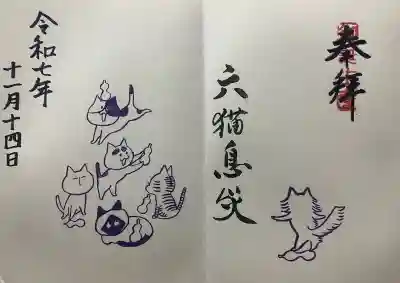 奉拝
六猫息災
令和七年
十一月十四日